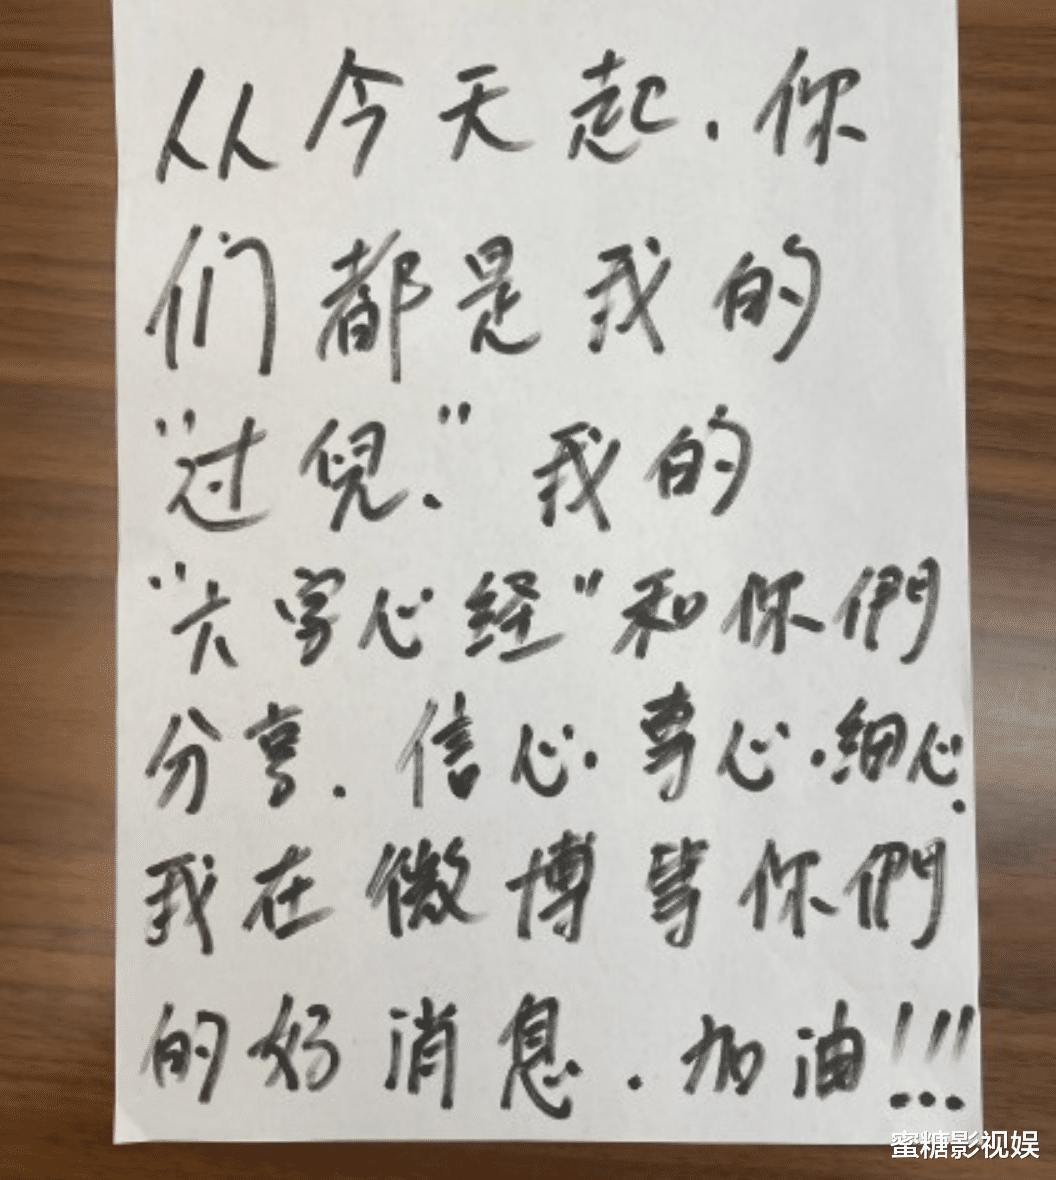 从今天起.你
们都是我的
“过兒.”我的
“六字心经”和你們
分享.信心.専心.细心.
我在微博等你們
的好消息.加油!!!
蜜糖影视娱